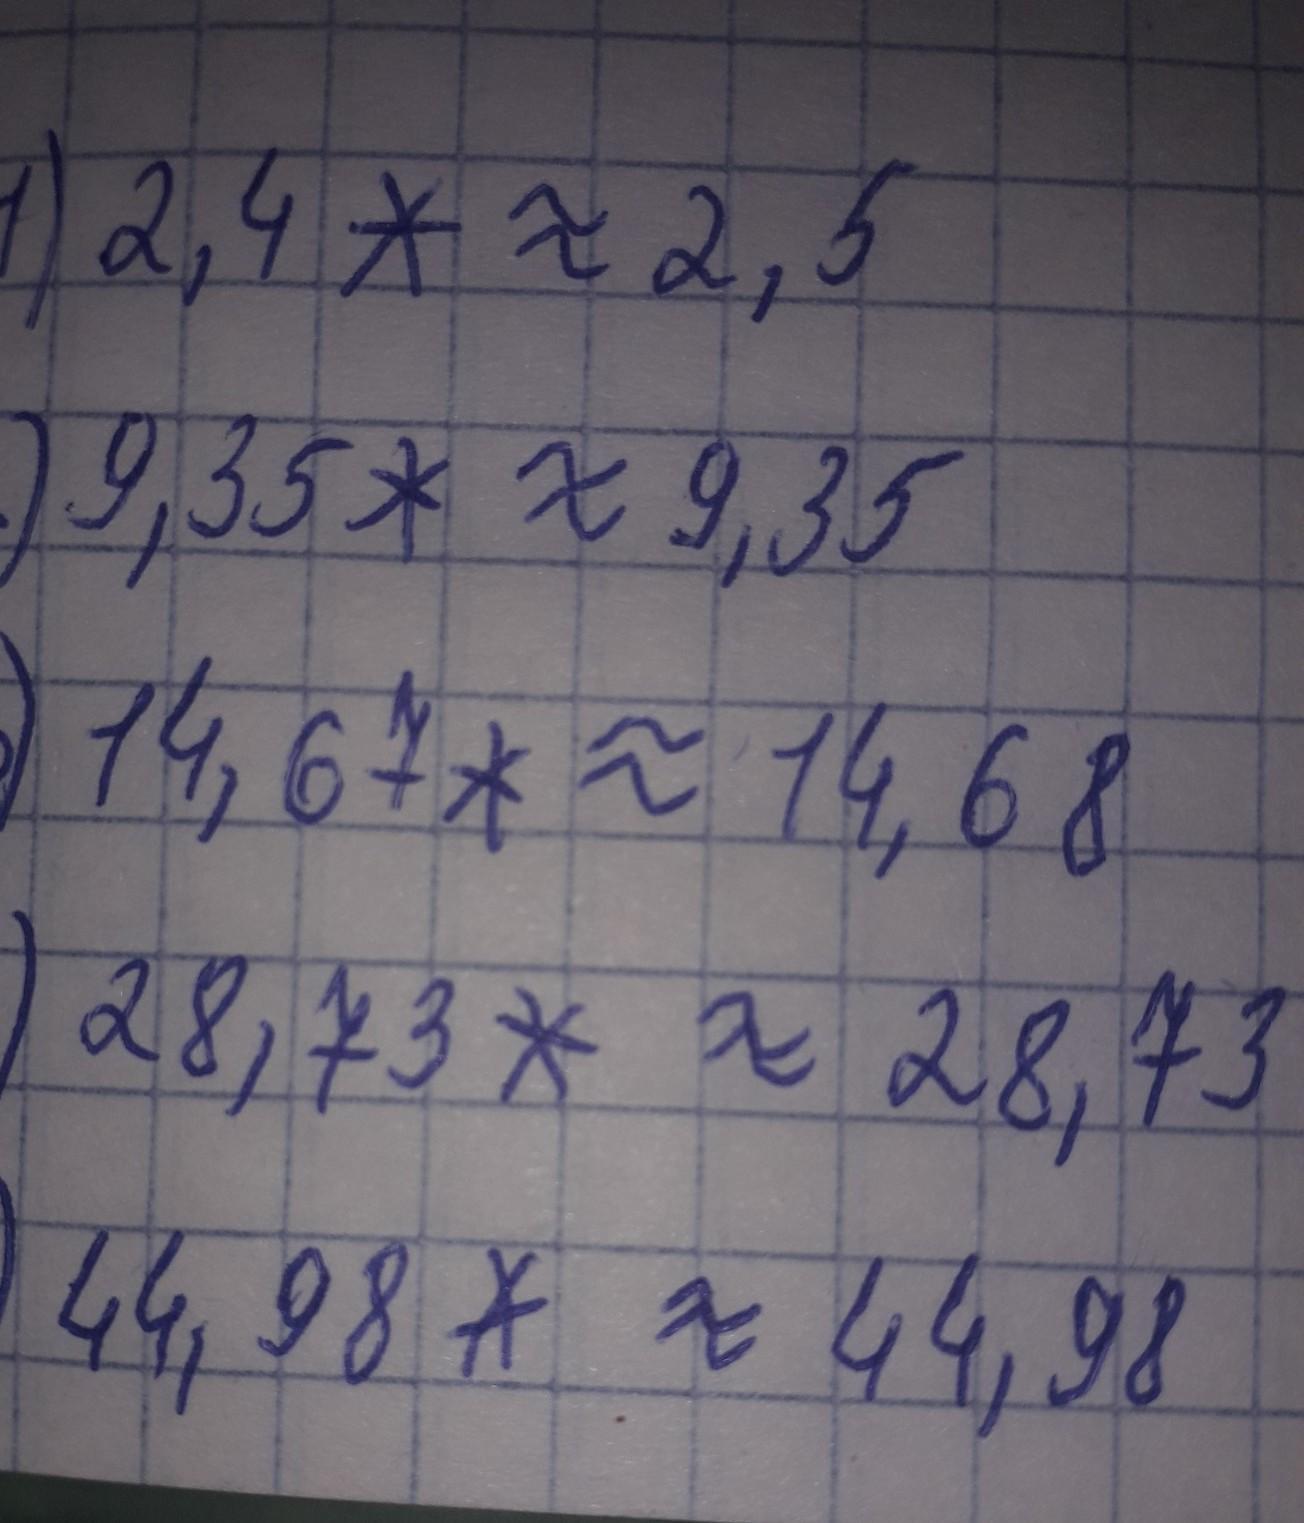 1) 2,4 * ≈ 2,5
) 9,35 * ≈ 9,35
) 14,67 * ≈ 14,68
) 28,73 * ≈ 28,73
) 44,98 * ≈ 44,98